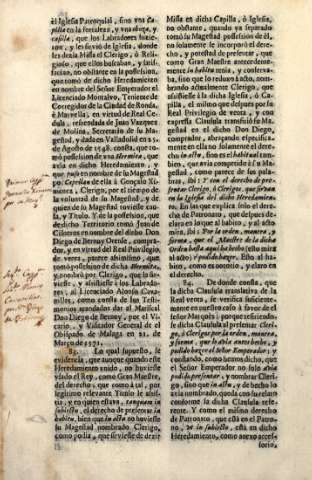 el Iglesia Parroquial, sino vna Ca-
pilla en la fortaleza, y vna choça, y
casilla, que los Labradores hazie-
ron, y les sirviò de Iglesia, donde
les dezia Missa el Clerigo, ò Reli-
gioso, que ellos buscavan, y satis-
faziao, no obstante en la possession,
que tomò de dicho Heredamiento
en nombre del Señor Emperador el
Licenciado Montalvo, Teniente de
Corregidor de la Ciudad de Ronda,
y Marvella, en virtud de Real Ce-
dula, refrendada de Juan Vazquez
de Molina, Secretario de su Ma-
gestad, y dada en Valladolid en 25.
de Agosto de 1548. consta, que to-
mò possession de vna Hermita, que
avia en dicho Heredamiento, y
que puso en nombre de su Magestad
por Capellan de ella à Gonçalo Xi-
menez, Clerigo, por el tiempo de
la voluntad de su Magestad, y de
quien de su Magestad tuviesse cau-
sa, y Titulo. Y de la possession, que
de dicho Territorio tomò Juan de
Cisneros en nombre del dicho Don
Diego de Bernuy Orense, compra-
dor, y en virtud del Real Privilegio,
de venta, parece assimismo, que
tomò possession de dicha Hermita,
y nombrada por Clerigo, que la sir-
viesse, y assistiesse à los Labrado-
res, al Licenciado Alonso Cava-
nillas, como consta de los Testi-
monios mandados dar al Mariscal
Don Diego de Bernuy, por el Vi-
cario, y Visitador General de el
Obispado de Malaga en 21. de
Março de 1571.
83. Lo qual supuesto, se
evidencia, que aunque quando este
Heredamiento vino, no huviesse
vsado el Rey, como Gran Maestre,
del derecho, que como à tal, por
legitimo renitente Iunio le assis-
tia, y en quien estava, tanquam in
subiecto, el derecho de presentar in
habitu, bien que in actu no huviesse
su Magestad nombrado Clerigo,
como podia, que sirviesse de dezir
Missa en dicha Capilla, ò Iglesia,
no obstante, quando va separado
tomò la Magestad possession de èl,
no solamente le incorporò el dere-
cho, y potestad de presentar, que
como Gran Maestre antecedente-
mente in habitu tenia, y conserva-
va, sino que lo reduxo à acto, nom-
brando actualmente Clerigo, que
assistiesse à la dicha Iglesia, ò Ca-
pilla, el mismo que despues por su
Real Privilegio de venta, y con
expressa Clausula transfirió su Ma-
gestad en el dicho Don Diego,
comprador, abraçando expressissa-
mente en ella no solamente el dere-
cho in actu, sino es el habitual tam-
bien, que avia competido à su Ma-
gestad, como parece de sus pala-
bras, ibi: Y con el derecho de pre-
sentar Clerigo, ò Clerigos, que sirvan
en la Iglesia del dicho Heredamien-
to. En las que explica solo el dere-
cho de Patronato, que despues de-
clara en lo que al habito, y al ac-
to mira, ibi: Por la orden, manera, y
forma, que el Maestre de la dicha
Orden hasta aqui ha hecho (esto mira
al acto) y podido hazer. Esto al ha-
bito, como es notorio, y claro en
el derecho.
84. De donde consta, que
la dicha Clausula translativa de la
Real venta, se verifica suficiente-
mente en quanto solo al derecho de
presentar se refiere: porque quando
se dize: por dicha Clausula al preferitar Cle-
rigo, ò Clerigos, por la orden, manera,
y forma, que lo avia antes hecho, y
podido hazer el Señor Emperador; y
constando, como hemos dicho, que
el Señor Emperador no solo avia
podido presentar, y nombrar Cleri-
go, sino que in actu, y de hecho lo
avia nombrado, queda con su relato
conforme la dicha Clausula refe-
rente. Y como el mismo derecho
de Patronato, que està en el dicho
N. in subiecto, està en dicho
Heredamiento, como anexo accel-
sorio,